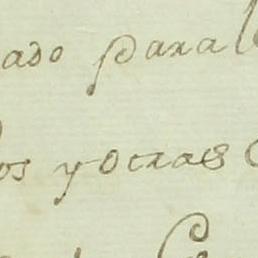 ado para l
os y otras